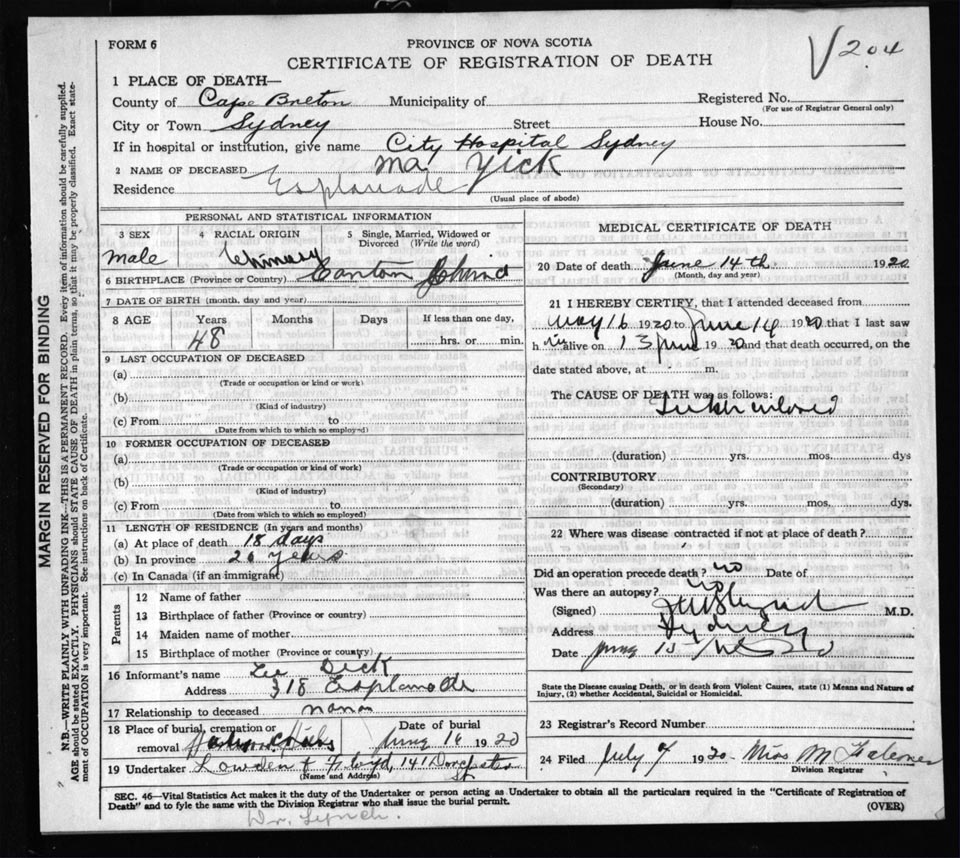 FORM 6
PROVINCE OF NOVA SCOTIA
CERTIFICATE OF REGISTRATION OF DEATH
√204
1 PLACE OF DEATH—
County of Cape Breton Municipality of
Registered No.
(For use of Registrar General only)
City or Town Sydney Street House No.
If in hospital or institution, give name City Hospital Sydney
2 NAME OF DECEASED Ma Yick
Residence Esplanade
(Usual place of abode)
PERSONAL AND STATISTICAL INFORMATION
3 SEX male
4 RACIAL ORIGIN
5 Single, Married, Widowed or Divorced (Write the word)
6 BIRTHPLACE (Province or Country) Canton China
7 DATE OF BIRTH (month, day and year)
8 AGE Years Months Days If less than one day,
48 hrs. or min.
9 LAST OCCUPATION OF DECEASED
(a)
(Trade or occupation or kind or work)
(b)
(Kind of industry)
(c) From to
(Date from which to which so employed)
10 FORMER OCCUPATION OF DECEASED
(a)
(Trade or occupation or kind or work)
(b)
(Kind of industry)
(c) From to
(Date from which to which so employed)
11 LENGTH OF RESIDENCE (In years and months)
(a) At place of death 18 days
(b) In province 20 years
(c) In Canada (if an immigrant)
Parents
12 Name of father
13 Birthplace of father (Province or country)
14 Maiden name of mother
15 Birthplace of mother (Province or country)
16 Informant's name Lee Dick
Address 318 Esplanade
17 Relationship to deceased
18 Place of burial, cremation or removal
Date of burial June 16 1920
19 Undertaker Lowden & 141 Dorchester St
(Name and Address)
MEDICAL CERTIFICATE OF DEATH
20 Date of death June 14th 1920
(Month, day and year)
21 I HEREBY CERTIFY, that I attended deceased from
May 16 1920 to June 14 1920 that I last saw
him alive on 13 June 1920 and that death occurred, on the
date stated above, at m.
The CAUSE OF DEATH was as follows:
(duration) yrs. mos. dys
CONTRIBUTORY
(Secondary)
(duration) yrs. mos. dys.
22 Where was disease contracted if not at place of death?
Did an operation precede death? no Date of
Was there an autopsy? no
(Signed) M.D.
Address Sydney
Date June 15
State the Disease causing Death, or in death from Violent Causes, state (1) Means and Nature of
Injury, (2) whether Accidental, Suicidal or Homicidal.
23 Registrar's Record Number
24 Filed July 1920 Miss M
Division Registrar
SEC. 46—Vital Statistics Act makes it the duty of the Undertaker or person acting as Undertaker to obtain all the particulars required in the "Certificate of Registration of
Death" and to fyle the same with the Division Registrar who shall issue the burial permit.
(OVER)
Dr. Lynch.
MARGIN RESERVED FOR BINDING
N.B.—WRITE PLAINLY WITH UNFADING INK—THIS IS A PERMANENT RECORD. Every item of information should be carefully supplied.
AGE should be stated EXACTLY. PHYSICIANS should STATE CAUSE OF DEATH in plain terms, so that it may be properly classified. Exact statement of OCCUPATION is very important. See instructions on back of Certificate.